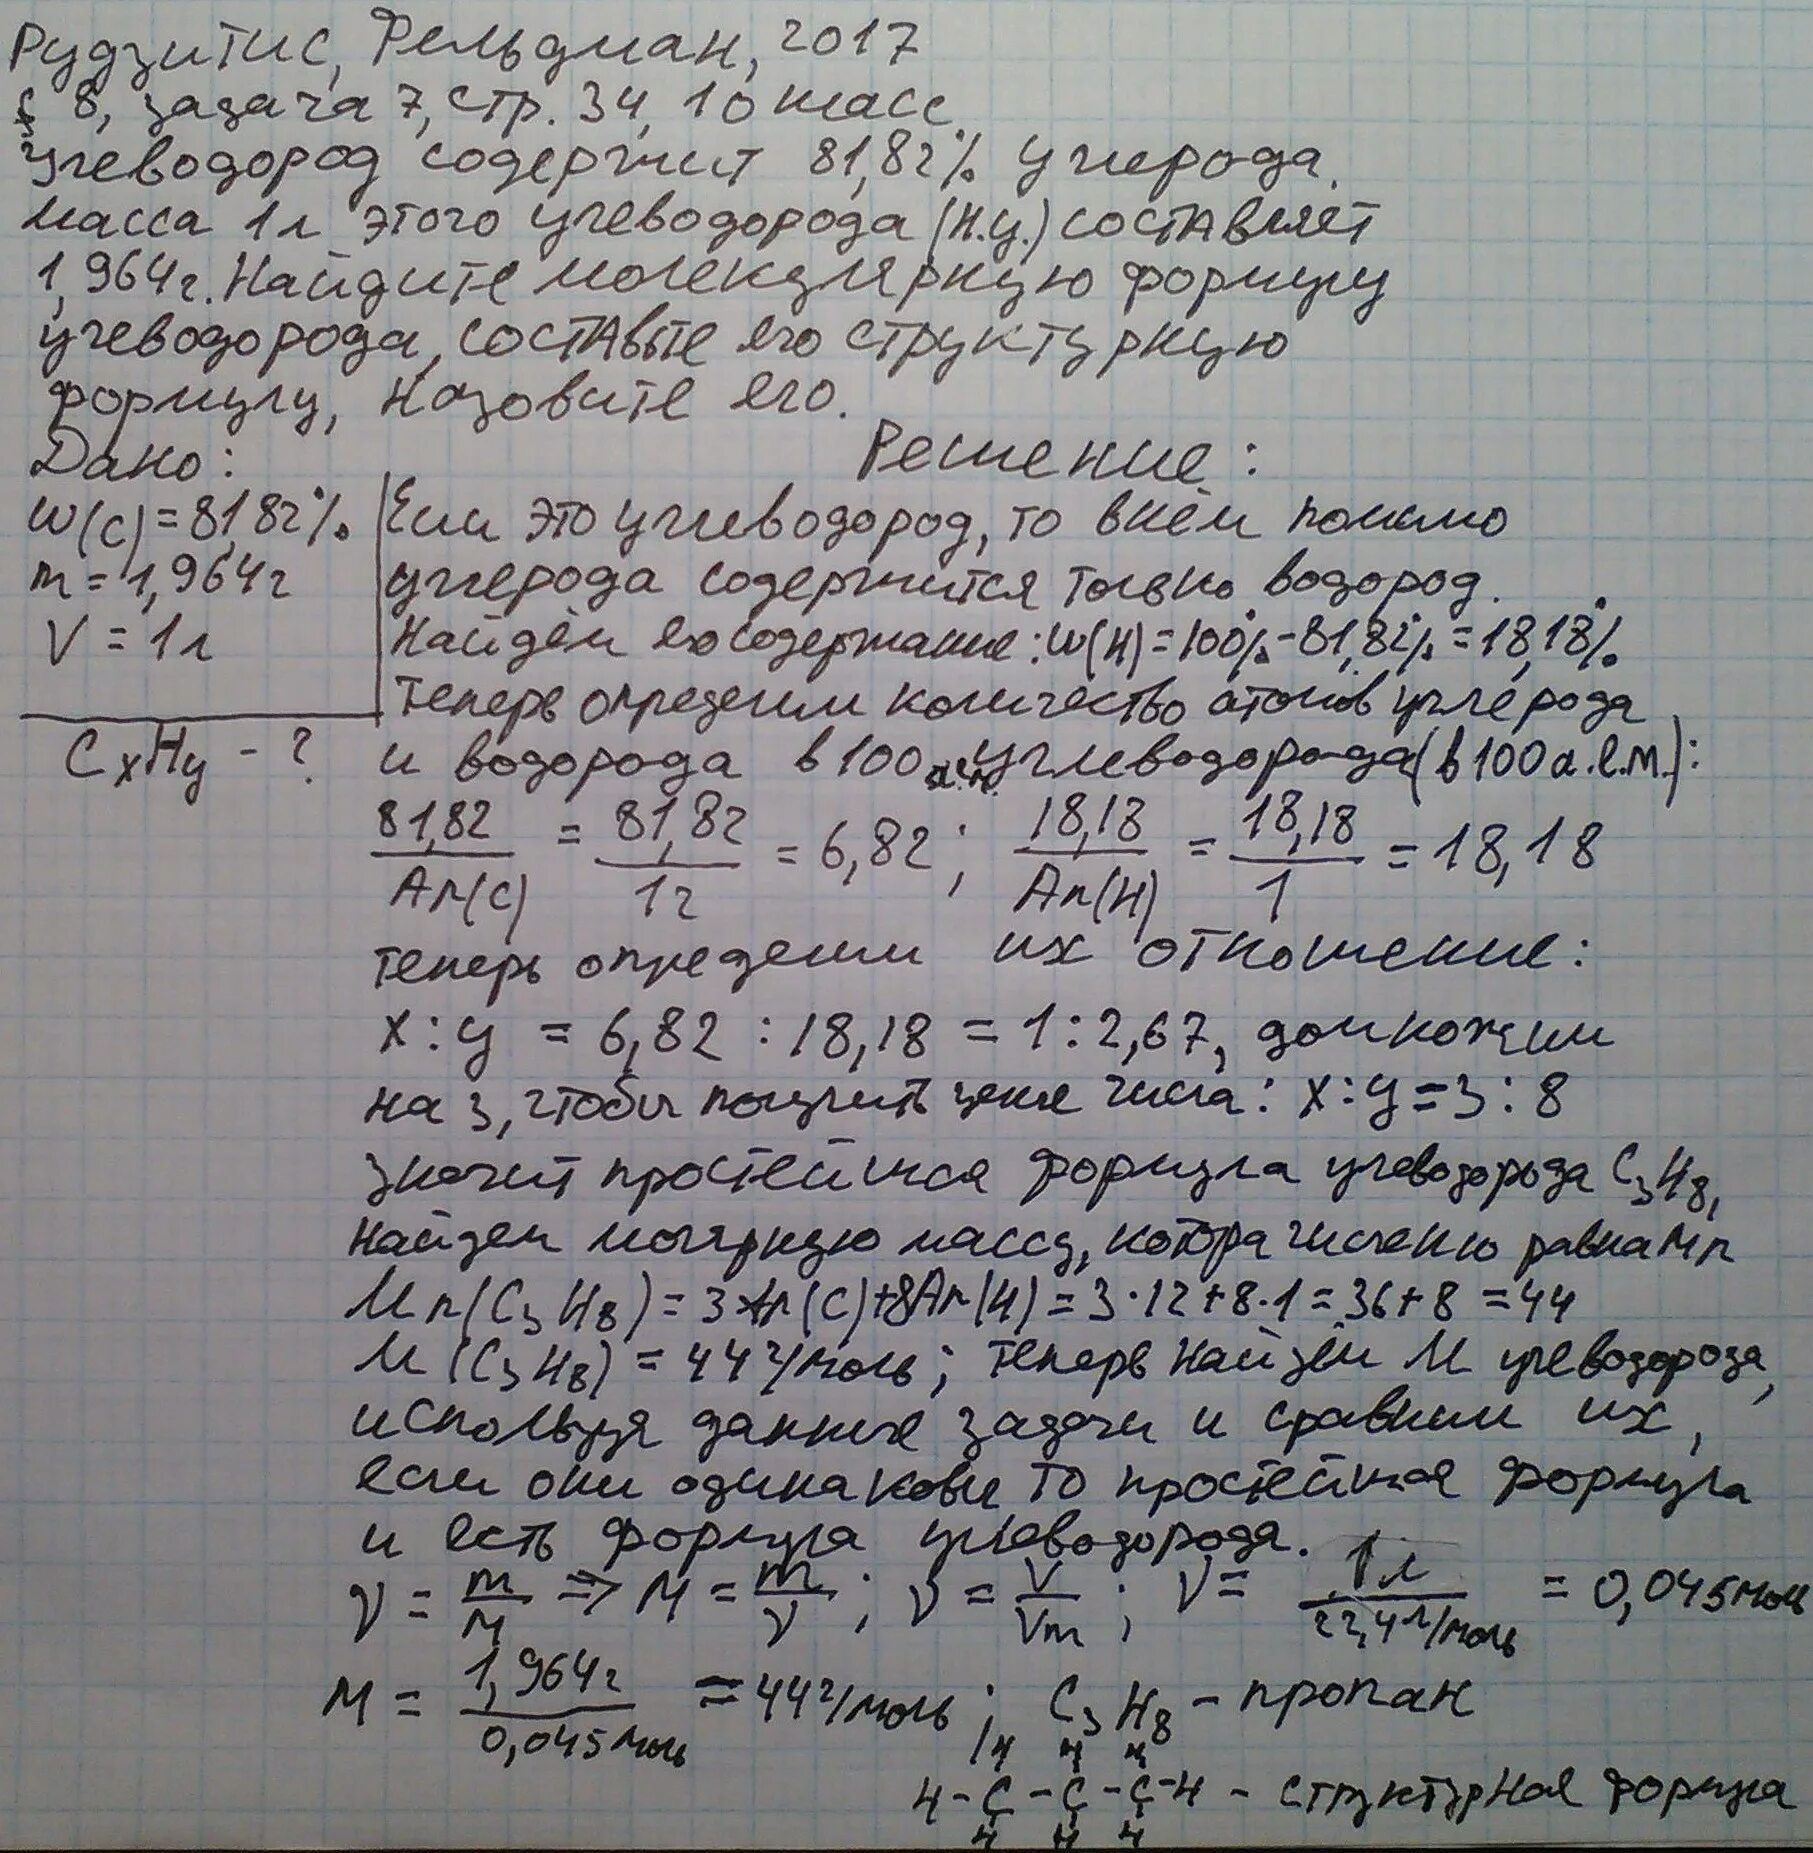 Рудзитис, Фельдман, 2017
§ 8, задача 7, стр. 34, 10 класс
Углеводород содержит 81,82% углерода.
Масса 1л этого углеводорода (н.у.) составляет
1,964г. Найдите молекулярную формулу
углеводорода, составьте его структурную
формулу, назовите его.
Дано:
Решение:
w(C) = 81,82%
m = 1,964г
V = 1л
CxHy - ?
Если это углеводород, то в нём помимо
углерода содержится только водород.
Найдём его содержание: w(H) = 100% - 81,82% = 18,18%
Теперь определим количество атомов углерода
и водорода в 100 а.е.м. углеводорода (в 100 а.е.м.):
81,82/Ar(C) = 81,82/12 = 6,82; 18,18/Ar(H) = 18,18/1 = 18,18
теперь определим их отношение:
x : y = 6,82 : 18,18 = 1 : 2,67, домножим
на 3, чтобы получить целые числа: x : y = 3 : 8
значит простейшая формула углеводорода C3H8,
найдем молярную массу, котора численно равна Mr
Mr(C3H8) = 3Ar(C) + 8Ar(H) = 3·12 + 8·1 = 36 + 8 = 44
M(C3H8) = 44 г/моль; теперь найдём M углеводорода,
используя данные задачи и сравним их,
если они одинаковы то простейшая формула
и есть формула углеводорода.
ν = m/M => M = m/ν; ν = V/Vm; ν = 1л/22,4л/моль = 0,045моль
M = 1,964г/0,045моль = 44г/моль; C3H8 - пропан
H H H
H - C - C - C - H - структурная формула
H H H